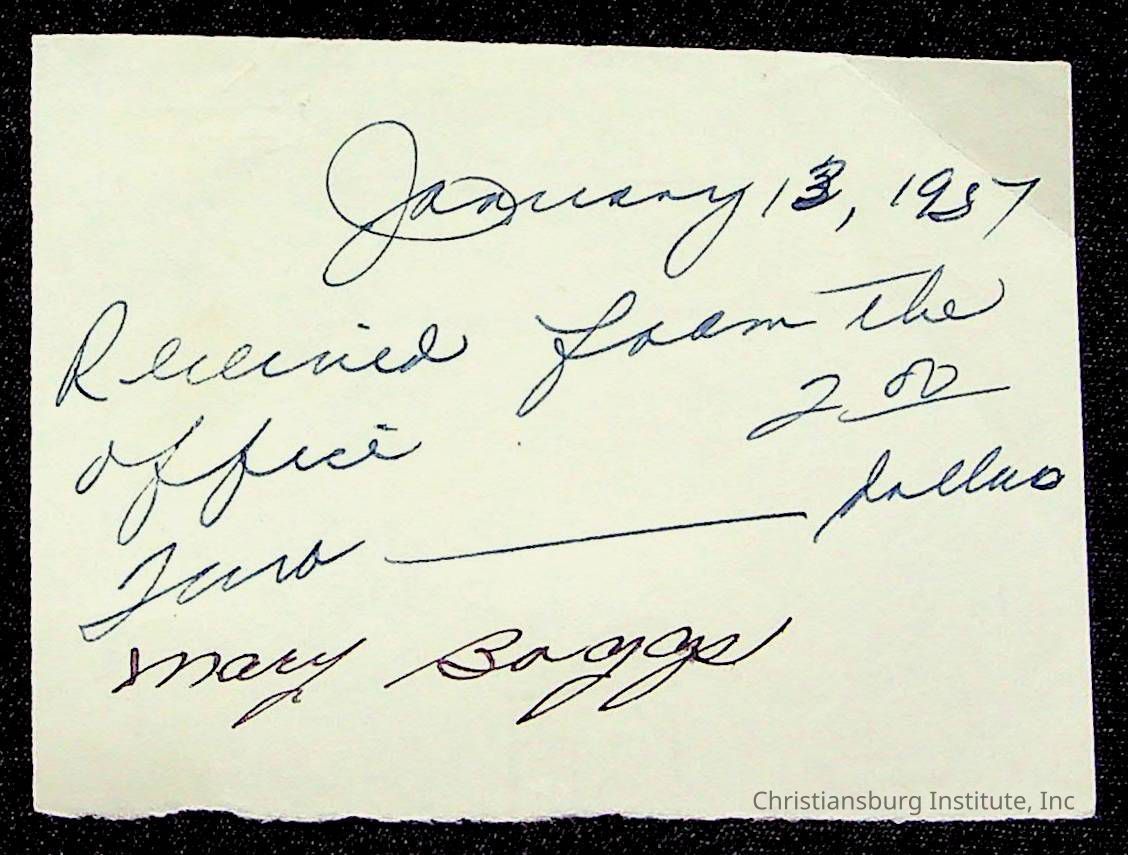 January 13, 1957
Received from the
office 2 00
Two — dollars
Mary Boggs
Christiansburg Institute, Inc